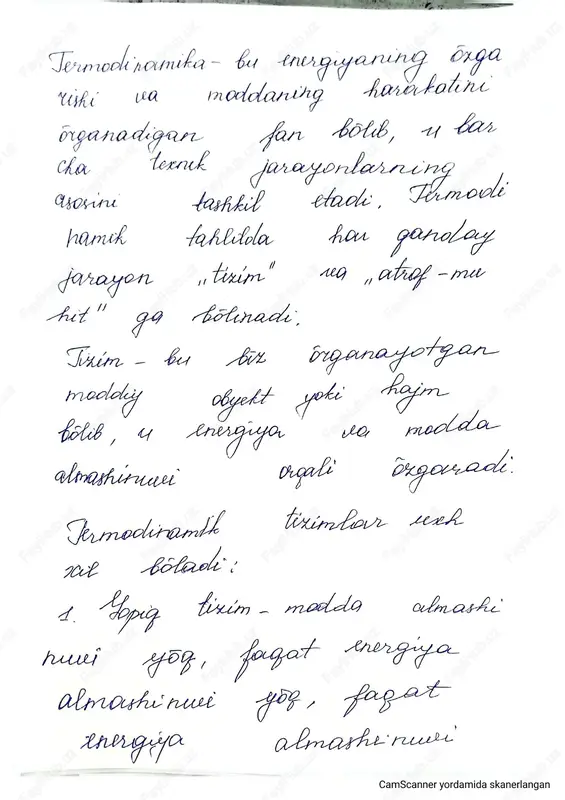 Termodinamika - bu energiyaning õzga
rishi va moddaning harakatini
õrganadigan fan bõlib, u bar
cha texnik jarayonlarning
asosini tashkil etadi. Termodi
namik tahlilda har qanday
jarayon „tizim" va „atrof-mu
hit" ga bõlinadi.
Tizim - bu biz õrganayotgan
moddiy obyekt yoki hajm
bõlib, u energiya va modda
almashinuvi orqali õzgaradi.
Termodinamik tizimlar uxh
xil bõladi:
1. Yopiq tizim - modda almashi
nuvi yõq, faqat energiya
almashinuvi yõq, faqat
energiya almashinuvi
CamScanner yordamida skanerlangan